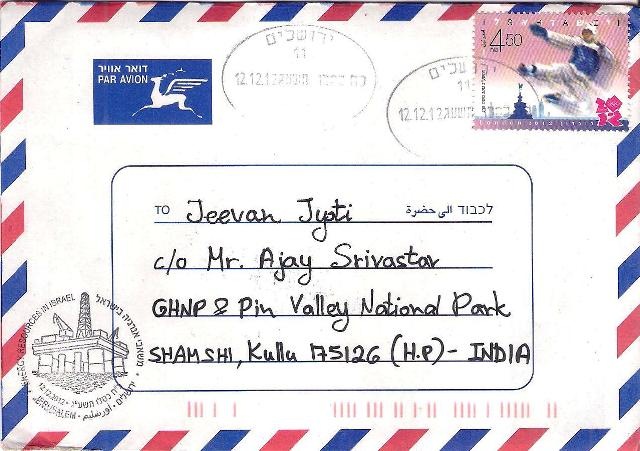 דואר אוויר
PAR AVION
ירושלים
11
12.12.12 כח כסלו תשעג
ירושלים
11
12.12.12
ISRAEL
4.50
LONDON 2012
TO Jeevan Jyoti לכבוד الى حضرة
c/o Mr. Ajay Srivastav
GHNP & Pin Valley National Park
SHAMSHI, Kullu 175126 (H.P) - INDIA
ENERGY RESOURCES IN ISRAEL
משאבי אנרגיה בישראל
12.12.2012 • כ"ח כסלו תשע"ג
ירושלים • اورشليم • JERUSALEM